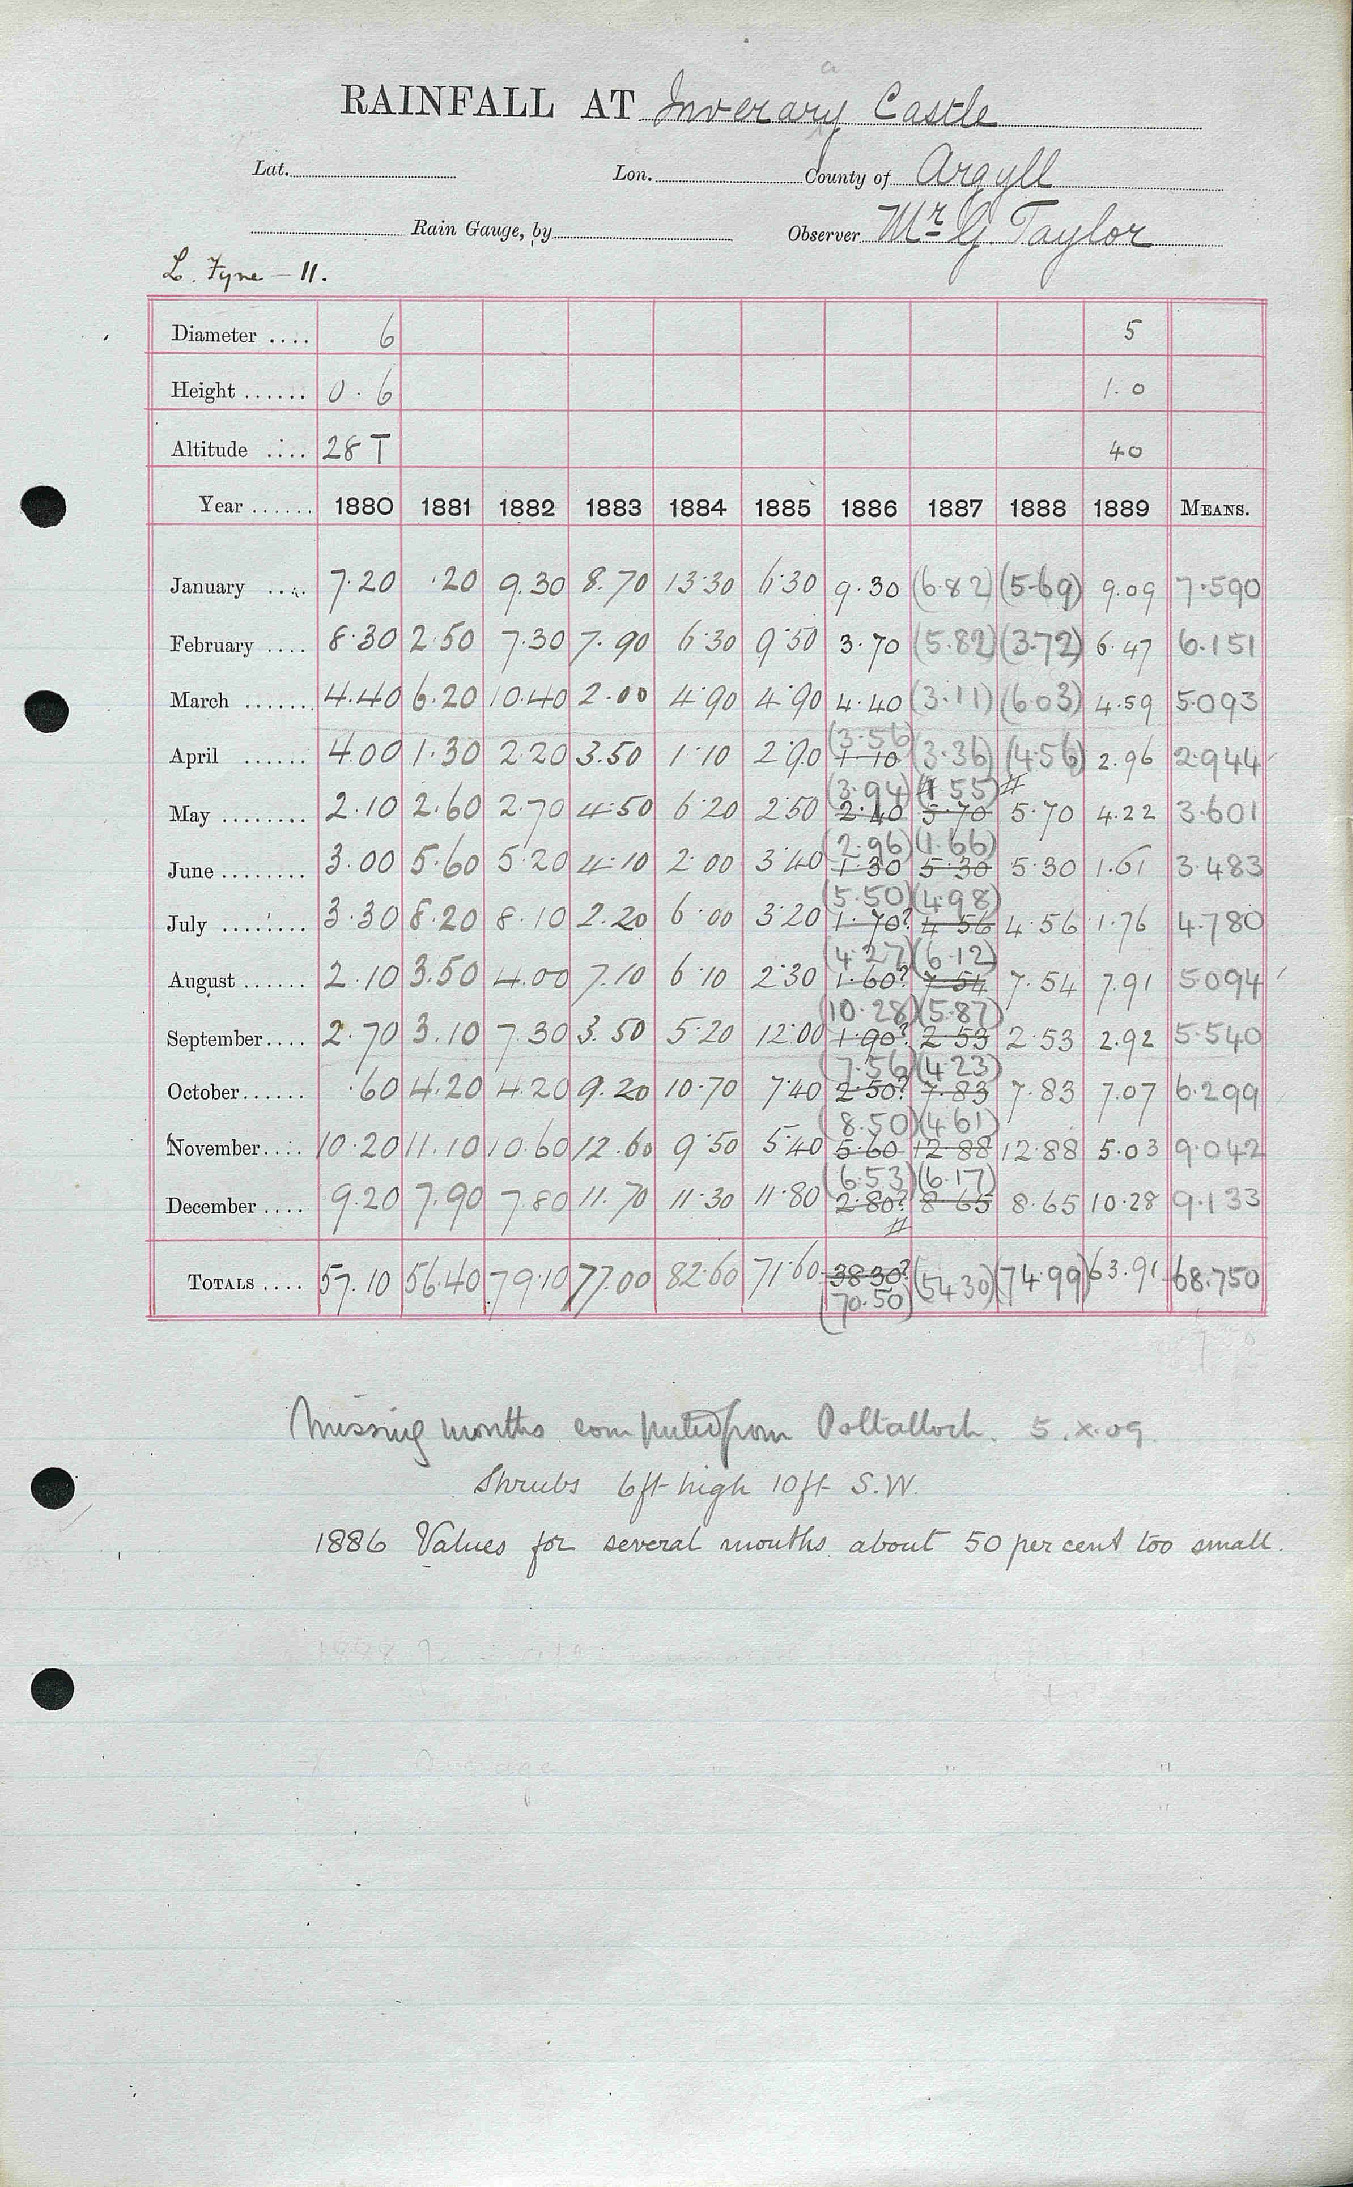 a
RAINFALL AT Inverary Castle
Lat. Lon. County of Argyll
Rain Gauge, by Observer Mr G. Taylor
L. Fyne - 11.
Diameter .... 6 5
Height ...... 0.6 1.0
Altitude .... 28 T 40
Year ...... 1880 1881 1882 1883 1884 1885 1886 1887 1888 1889 MEANS.
January .... 7.20 .20 9.30 8.70 13.30 6.30 9.30 (6.82) (5.69) 9.09 7.590
February .... 8.30 2.50 7.30 7.90 6.30 9.50 3.70 (5.82) (3.72) 6.47 6.151
March ....... 4.40 6.20 10.40 2.00 4.90 4.90 4.40 (3.11) (6.03) 4.59 5.093
(3.56)
April ...... 4.00 1.30 2.20 3.50 1.10 2.90 1.10 (3.36) (4.56) 2.96 2.944
(3.94) (1.55) #
May ........ 2.10 2.60 2.70 4.50 6.20 2.50 2.40 5.70 5.70 4.22 3.601
(2.96) (1.66)
June ........ 3.00 5.60 5.20 4.10 2.00 3.40 1.30 5.30 5.30 1.61 3.483
(5.50) (4.98)
July ........ 3.30 8.20 8.10 2.20 6.00 3.20 1.70? 4.56 4.56 1.76 4.780
(4.27) (6.12)
August ...... 2.10 3.50 4.00 7.10 6.10 2.30 1.60? 7.54 7.54 7.91 5.094
(10.28) (5.87)
September .... 2.70 3.10 7.30 3.50 5.20 12.00 1.90? 2.53 2.53 2.92 5.540
(7.56) (4.23)
October ...... .60 4.20 4.20 9.20 10.70 7.40 2.50? 7.83 7.83 7.07 6.299
(8.50) (4.61)
November .... 10.20 11.10 10.60 12.60 9.50 5.40 5.60 12.88 12.88 5.03 9.042
(6.53) (6.17)
December .... 9.20 7.90 7.80 11.70 11.30 11.80 2.80? 8.65 8.65 10.28 9.133
#
TOTALS .... 57.10 56.40 79.10 77.00 82.60 71.60 38.30? (54.30) (74.99) 63.91 68.750
(70.50)
Missing months computed from Poltalloch. 5.x.09.
Shrubs 6ft high 10ft S.W.
1886 Values for several months about 50 per cent too small.